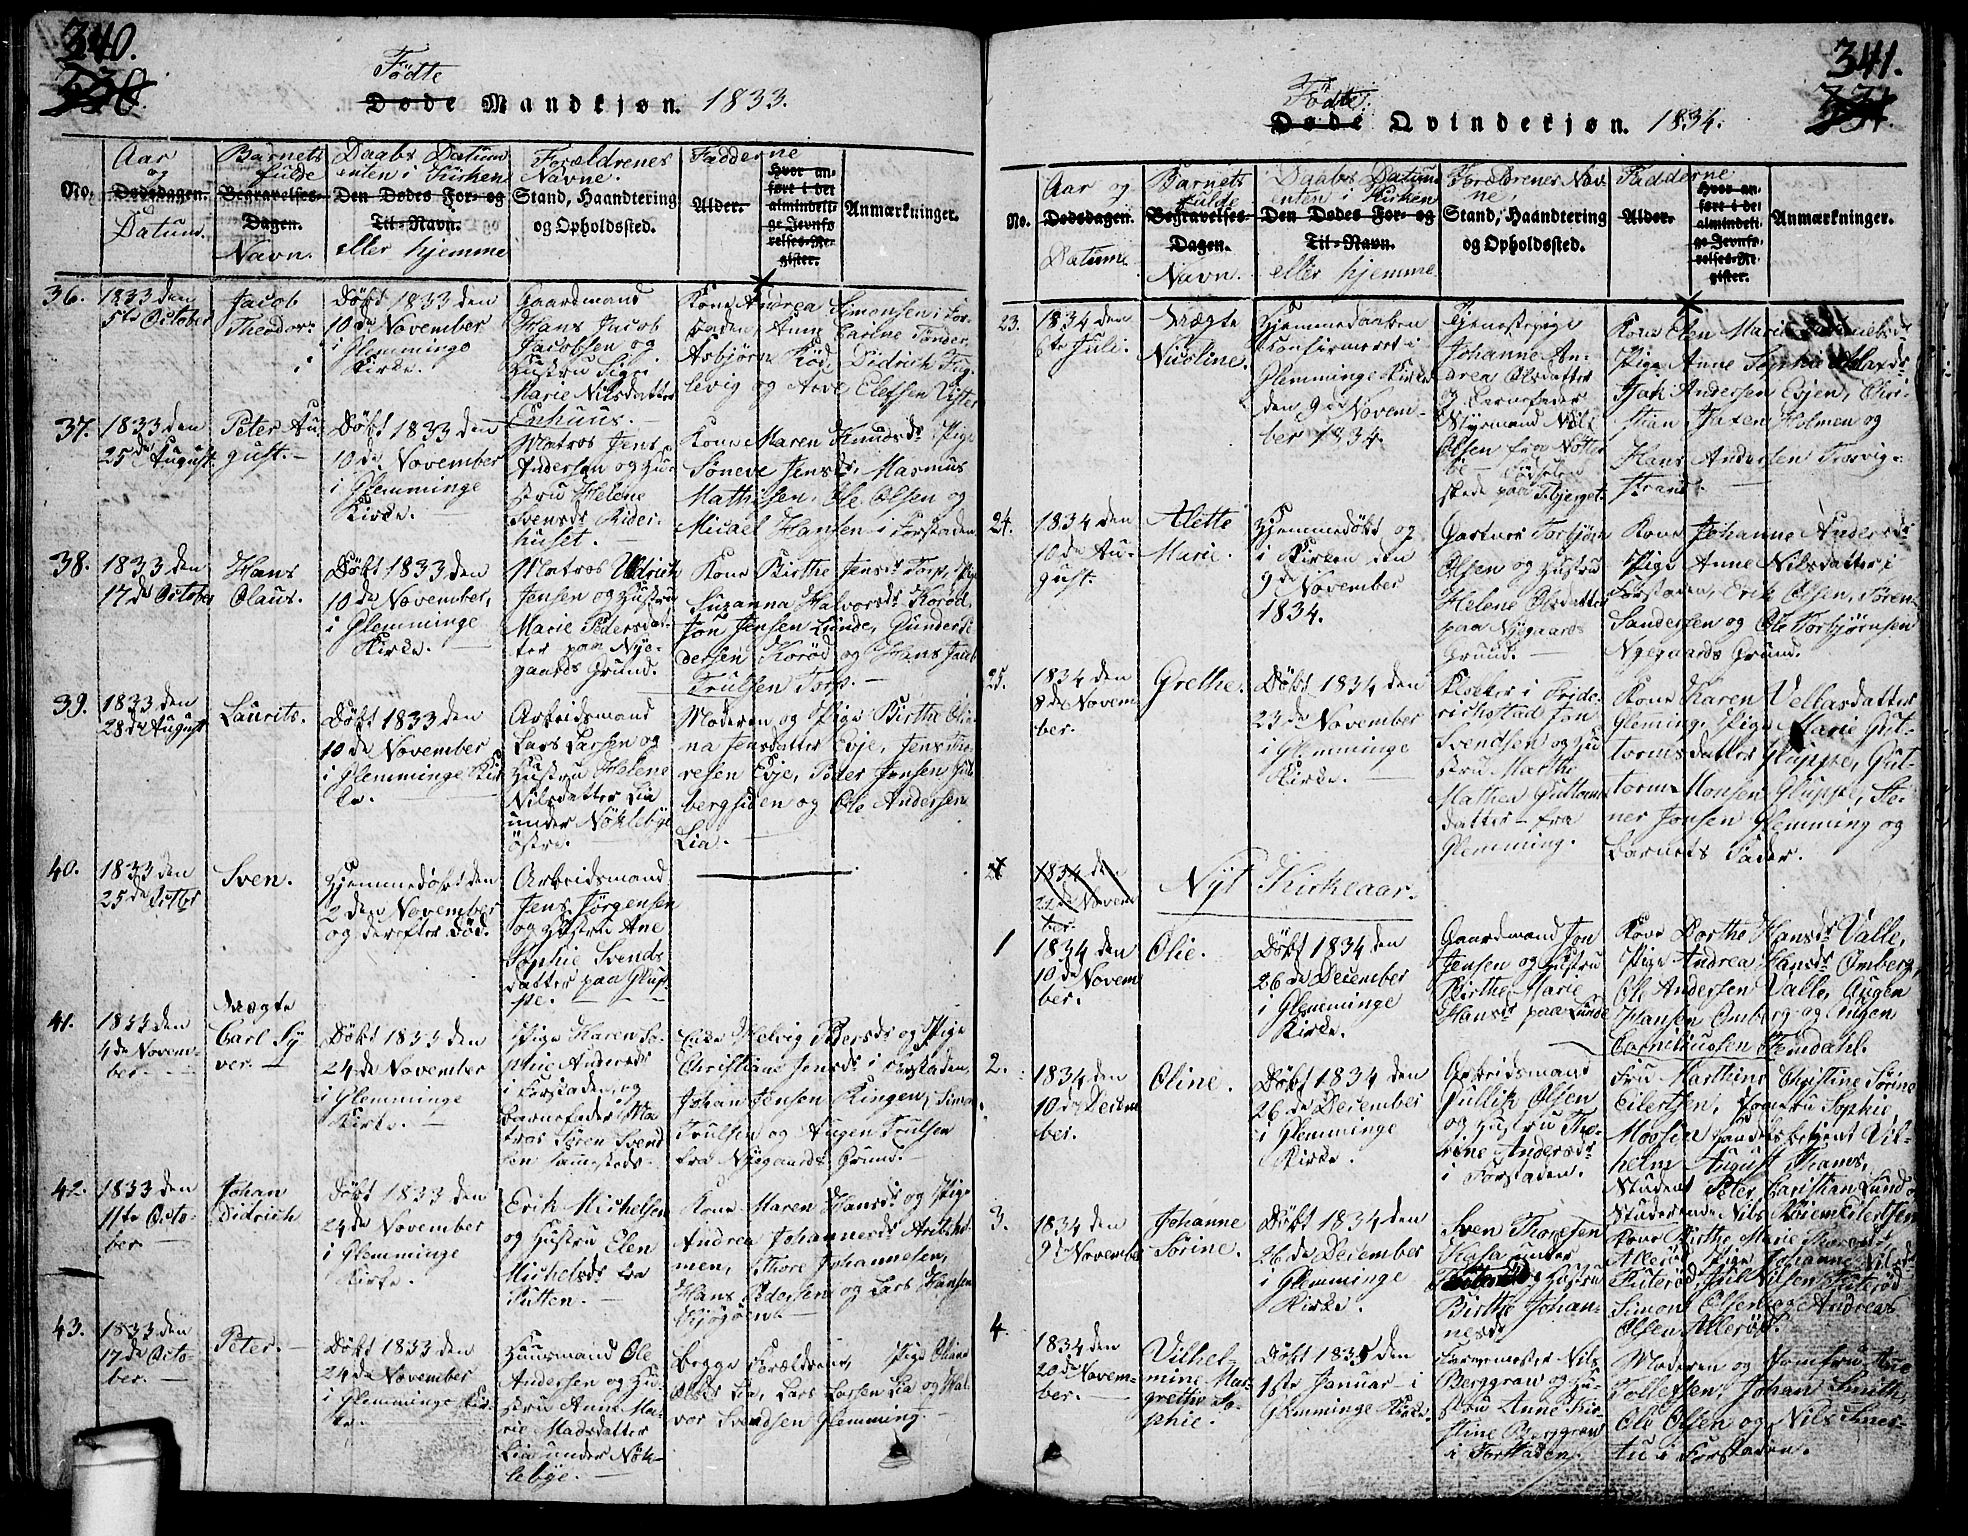 340.
330.
Fødte
Døde Mandkjøn. 1833.
No.
Aar og
Dødsdagen.
Datum.
Barnets fulde
Begravelses-
Dagen.
Navn.
Daabs Datum
enten i Kirken
Den Dødes For- og
Til-Navn.
eller hjemme
Forældrenes
Navne.
Stand, Haandtering
og Opholdssted.
Fadderne
Alder.
Hvor an-
ført i det
almindeli-
ge Jevnfø-
relses-Re-
gister.
Anmærkninger.
36.
1833 den
5te October
Jacob
Theodor.
Døbt 1833 den
10de November
i Glemminge
Kirke.
Gaardmand
Hans Jacob
Jacobsen og
Hustru Siri
Marie Nilsdatter
Enhuus.
Kone Andrea Simonsen i For-
staden, Anne
Asbjørn Röd, Didrich
levig og Arve Elefsen Vister
37.
1833 den
25de August
Peter Au-
gust.
Døbt 1833 den
10de November
i Glemminge
Kirke.
Matros Jens
Andersen og Hu-
stru Helene
Svensdr Rider-
huset.
Kone Maren Knudsdr, Pige
Söneve Jensdr, Rasmus
Mathisen, Ole Olsen og
Micael Hansen i Forstaden
38.
1833 den
17de October
Hans
Olaus.
Døbt 1833 den
10de November,
i Glemminge
Kirke.
Matros Uldrich
Jensen og Hustru
Marie Pedersdat-
ter paa Nye-
gaards Grund.
Kone Birthe Jensdr Torp, Pige
Suzanna Halvorsdr Korød,
Jon Jensen Lunde, Gunder Pe-
dersen Korød og Hans Jacob
Trulsen Torp.
39.
1833 den
28de August
Laurits.
Døbt 1833 den
10de November
i Glemminge Kir-
ke.
Arbeidsmand
Lars Larsen og
Hustru Helene
Nilsdatter Lia
under Nöklebye
østre.
Moderen og Pige Birthe Oli-
na Jensdatter Evje, Jens Tho-
resen Evje, Peder Jensen
bergsiden og Ole Andersen
Lia.
40.
1833 den
25de Octbr
Sven.
Hjemmedøbt den
2den November
og derefter død.
Arbeidsmand
Jens Jørgensen
og Hustru Ane
Sophie Svends-
datter paa Glup-
pe.
41.
1833 den
4de Novem-
ber.
Uægte
Carl Sy-
ver.
Døbt 1833 den
24de November
i Glemminge
Kirke.
Pige Karen So-
phie Andersdr
i Forstaden, og
Barnefader Ma-
tros Søren Svend-
sen sammesteds.
Enke Helvig Pedersdr og Pige
Christiane Jensdr i Forstaden,
Johan Jensen Ringen, Simon
Trulsen og Augen Trulsen
fra Nyegaards Grund.
42.
1833 den
11te Octo-
ber.
Johan
Didrich
Døbt 1833 den
24de November
i Glemminge
Kirke.
Erik Michelsen
og Hustru Elen
Michelsdr fra
Putten.
Kone Maren Hansdr og Pige
Andrea Johannesdr
men, Thore Johannesen,
Hans Pedersen og Lars Hansen
Kjøgöen.
43.
1833 den
17de Octo-
ber.
Peter.
Døbt 1833 den
24de November
i Glemminge Kir-
ke.
Huusmand Ole
Andersen og Hu-
stru Anne Ma-
rie Madsdatter
Lia under Nök-
lebye.
Begge Forældrene, Pige
Olsdr Lia, Lars Larsen Lia og Hal-
vor Svendsen Glemming.
341.
331.
Fødte
Døde Qvindekjøn. 1834.
No.
Aar og
Dødsdagen.
Datum
Barnets
fulde
Begravelses-
Dagen.
Navn.
Daabs Datum
enten i Kirken
Den Dødes For- og
Til-Navn.
eller hjemme
Forældrenes Nav-
ne,
Stand, Haandtering
og Opholdssted.
Fadderne
Alder.
Hvor an-
ført i det
almindeli-
ge Jevnfø-
relses-Re-
gister.
Anmærkninger.
23.
1834 den
6te Juli.
Uægte
Nicoline.
Hjemmedaaben
confirmeret i
Glemminge Kirke
den 9de Novem-
ber 1834.
Tjenestepige
Johanne An-
drea Olsdatter
og Barnefader
Styrmand Nils
Olsen fra Nötter
Kone Elen Marie
Pige Anne Sophie
Isak Andersen Evjen, Chri-
stian Holmen og
Hans Andersen Trosvig-
strand.
24.
1834 den
10de Au-
gust.
Alette
Marie.
Hjemmedøbt og
i Kirken den
9de November
1834.
Gartner Torbjörn
Olsen og Hustru
Helene Olsdatter
paa Nyegaards
Grund.
Kone Johanne Andersdr
Pige Anne Nilsdatter i
Forstaden, Erik Olsen, Søren
Sandersen og Ole Torbjørnsen
Nyegaards Grund.
25.
1834 den
8de Novem-
ber.
Grethe.
Døbt 1834 den
23de November
i Glemminge
Kirke.
Klokker i Fride-
richstad Jon
Svendsen og Hu-
stru Marthe
Mathea Guttorms-
datter fra
Glemming.
Kone Karen Vellasdatter
Gleming, Pige Marie Gut-
tormsdatter Gluppe, Gut-
torm Monsen Gluppe, Ste-
ner Jonsen Glemming og
Barnets Fader.
1834 den
22de Novem-
ber.
Nyt Kirkeaar.
1
1834 den
10de Novem-
ber.
Olie.
Døbt 1834 den
26de December
i Glemminge
Kirke.
Gaardmand Jon
Jensen og Hustru
Birthe Marie
Hansdr paa Lunde
Kone Dorthe Hansdr Valle,
Pige Andrea Hansdr Omberg,
Ole Andersen Valle, Augen
Hansen Omberg og Augen
Corneliussen Femdahl.
2.
1834 den
10de Decem-
ber.
Oline.
Døbt 1834 den
26de December
i Glemminge
Kirke.
Arbeidsmand
Pullik Olsen
og Hustru Tho-
rine Andersdr
i Forstaden.
Fru Marthine Christine Sörine
Eilertsen, Jomfru Sophie
Moesen, Handelsbetjent Vil-
helm August Thams,
Student Peter Christian Lund og
Studerende Nils Eilertsen
3.
1834 den
9de November
Johanne
Sörine.
Døbt 1834 den
26de December
i Glemminge
Kirke.
Sven Thoresen
Kasa under
og Hustru
Birthe Johan-
nesdr
Kone Birthe Marie
Alleröd, Pige Johanne Nilsdr
Puteröd, Juul Nilsen Puteröd
Simon Olsen og Andreas
Olsen Alleröd.
4.
1834 den
20de Novem-
ber.
Vilhel-
mine Mar-
grethe So-
phie.
Døbt 1835 den
1ste Januar i
Glemminge Kirke.
Farvemester Nils
Berggran og Hu-
stru Anne Kir-
stine Berggran
i Forstaden.
Moderen og Jomfru Ane
Tollefsen, Johan Smith,
Ole Olsen og Nils Snes-
tu i Forstaden.